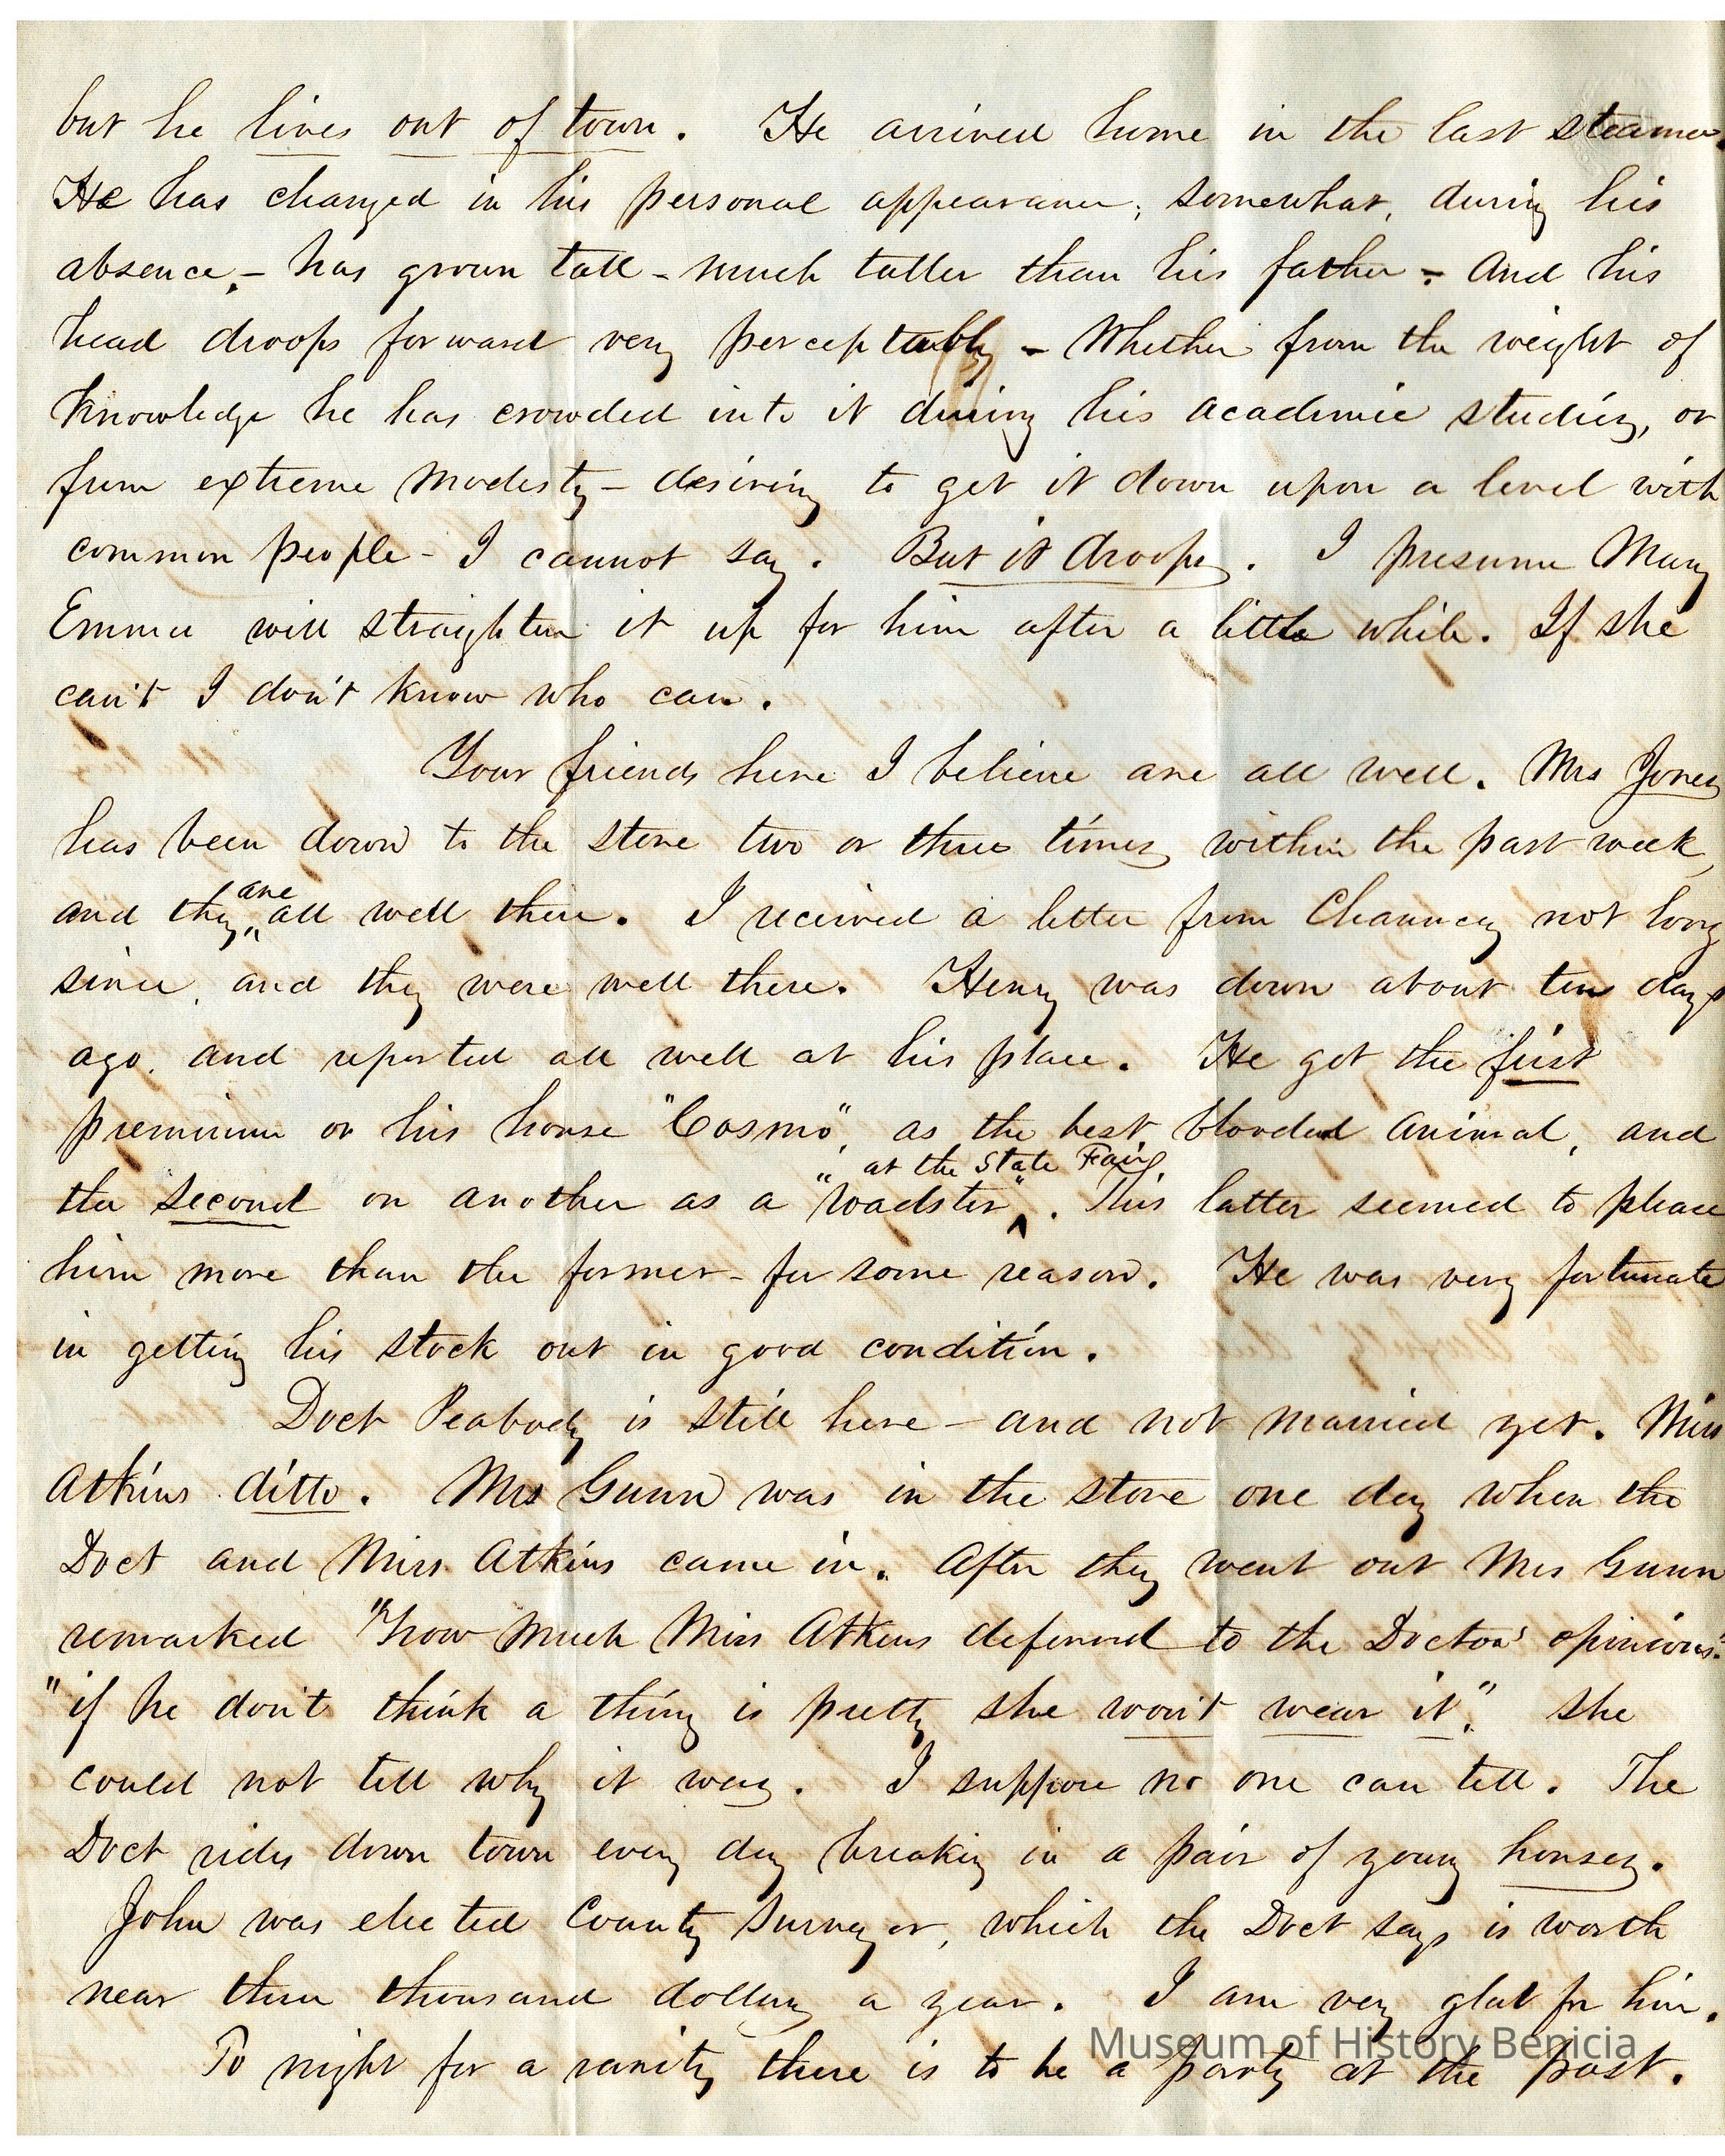 but he lives out of town. He arrived home in the last steamer.
He has changed in his personal appearance, somewhat, during his
absence, - has grown tall - much taller than his father - And his
head droops forward very perceptably - Whether from the weight of
Knowledge he has crowded into it during his academic studies, or
from extreme modesty - desiring to get it down upon a level with
common people - I cannot say. But it droops. I presume Mary
Emma will straighten it up for him after a little while. If she
can't I don't know who can.
Your friends here I believe are all well. Mrs Jones
has been down to the store two or three times within the past week,
and they are all well there. I received a letter from Chauncey not long
since, and they were well there. Henry was down about ten days
ago, and reported all well at his place. He got the first
premium on his horse "Cosmo", as the best blooded animal, and
the second on another as a "roadster" at the State Fair. This latter seemed to please
him more than the former - for some reason. He was very fortunate
in getting his stock out in good condition.
Doct Peabody is still here - and not married yet. Miss
Atkins ditto. Mrs Gunn was in the store one day when the
Doct and Miss Atkins came in. After they went out Mrs Gunn
remarked "how much Miss Atkins deferred to the Doctors' opinions".
"if he don't think a thing is pretty she won't wear it." She
could not tell why it was. I suppose no one can tell. The
Doct rides down town every day breaking in a pair of young horses.
John was elected County Surveyor, which the Doct says is worth
near three thousand dollars a year. I am very glad for him.
To night for a rarity there is to be a party at the post.
Museum of History Benicia